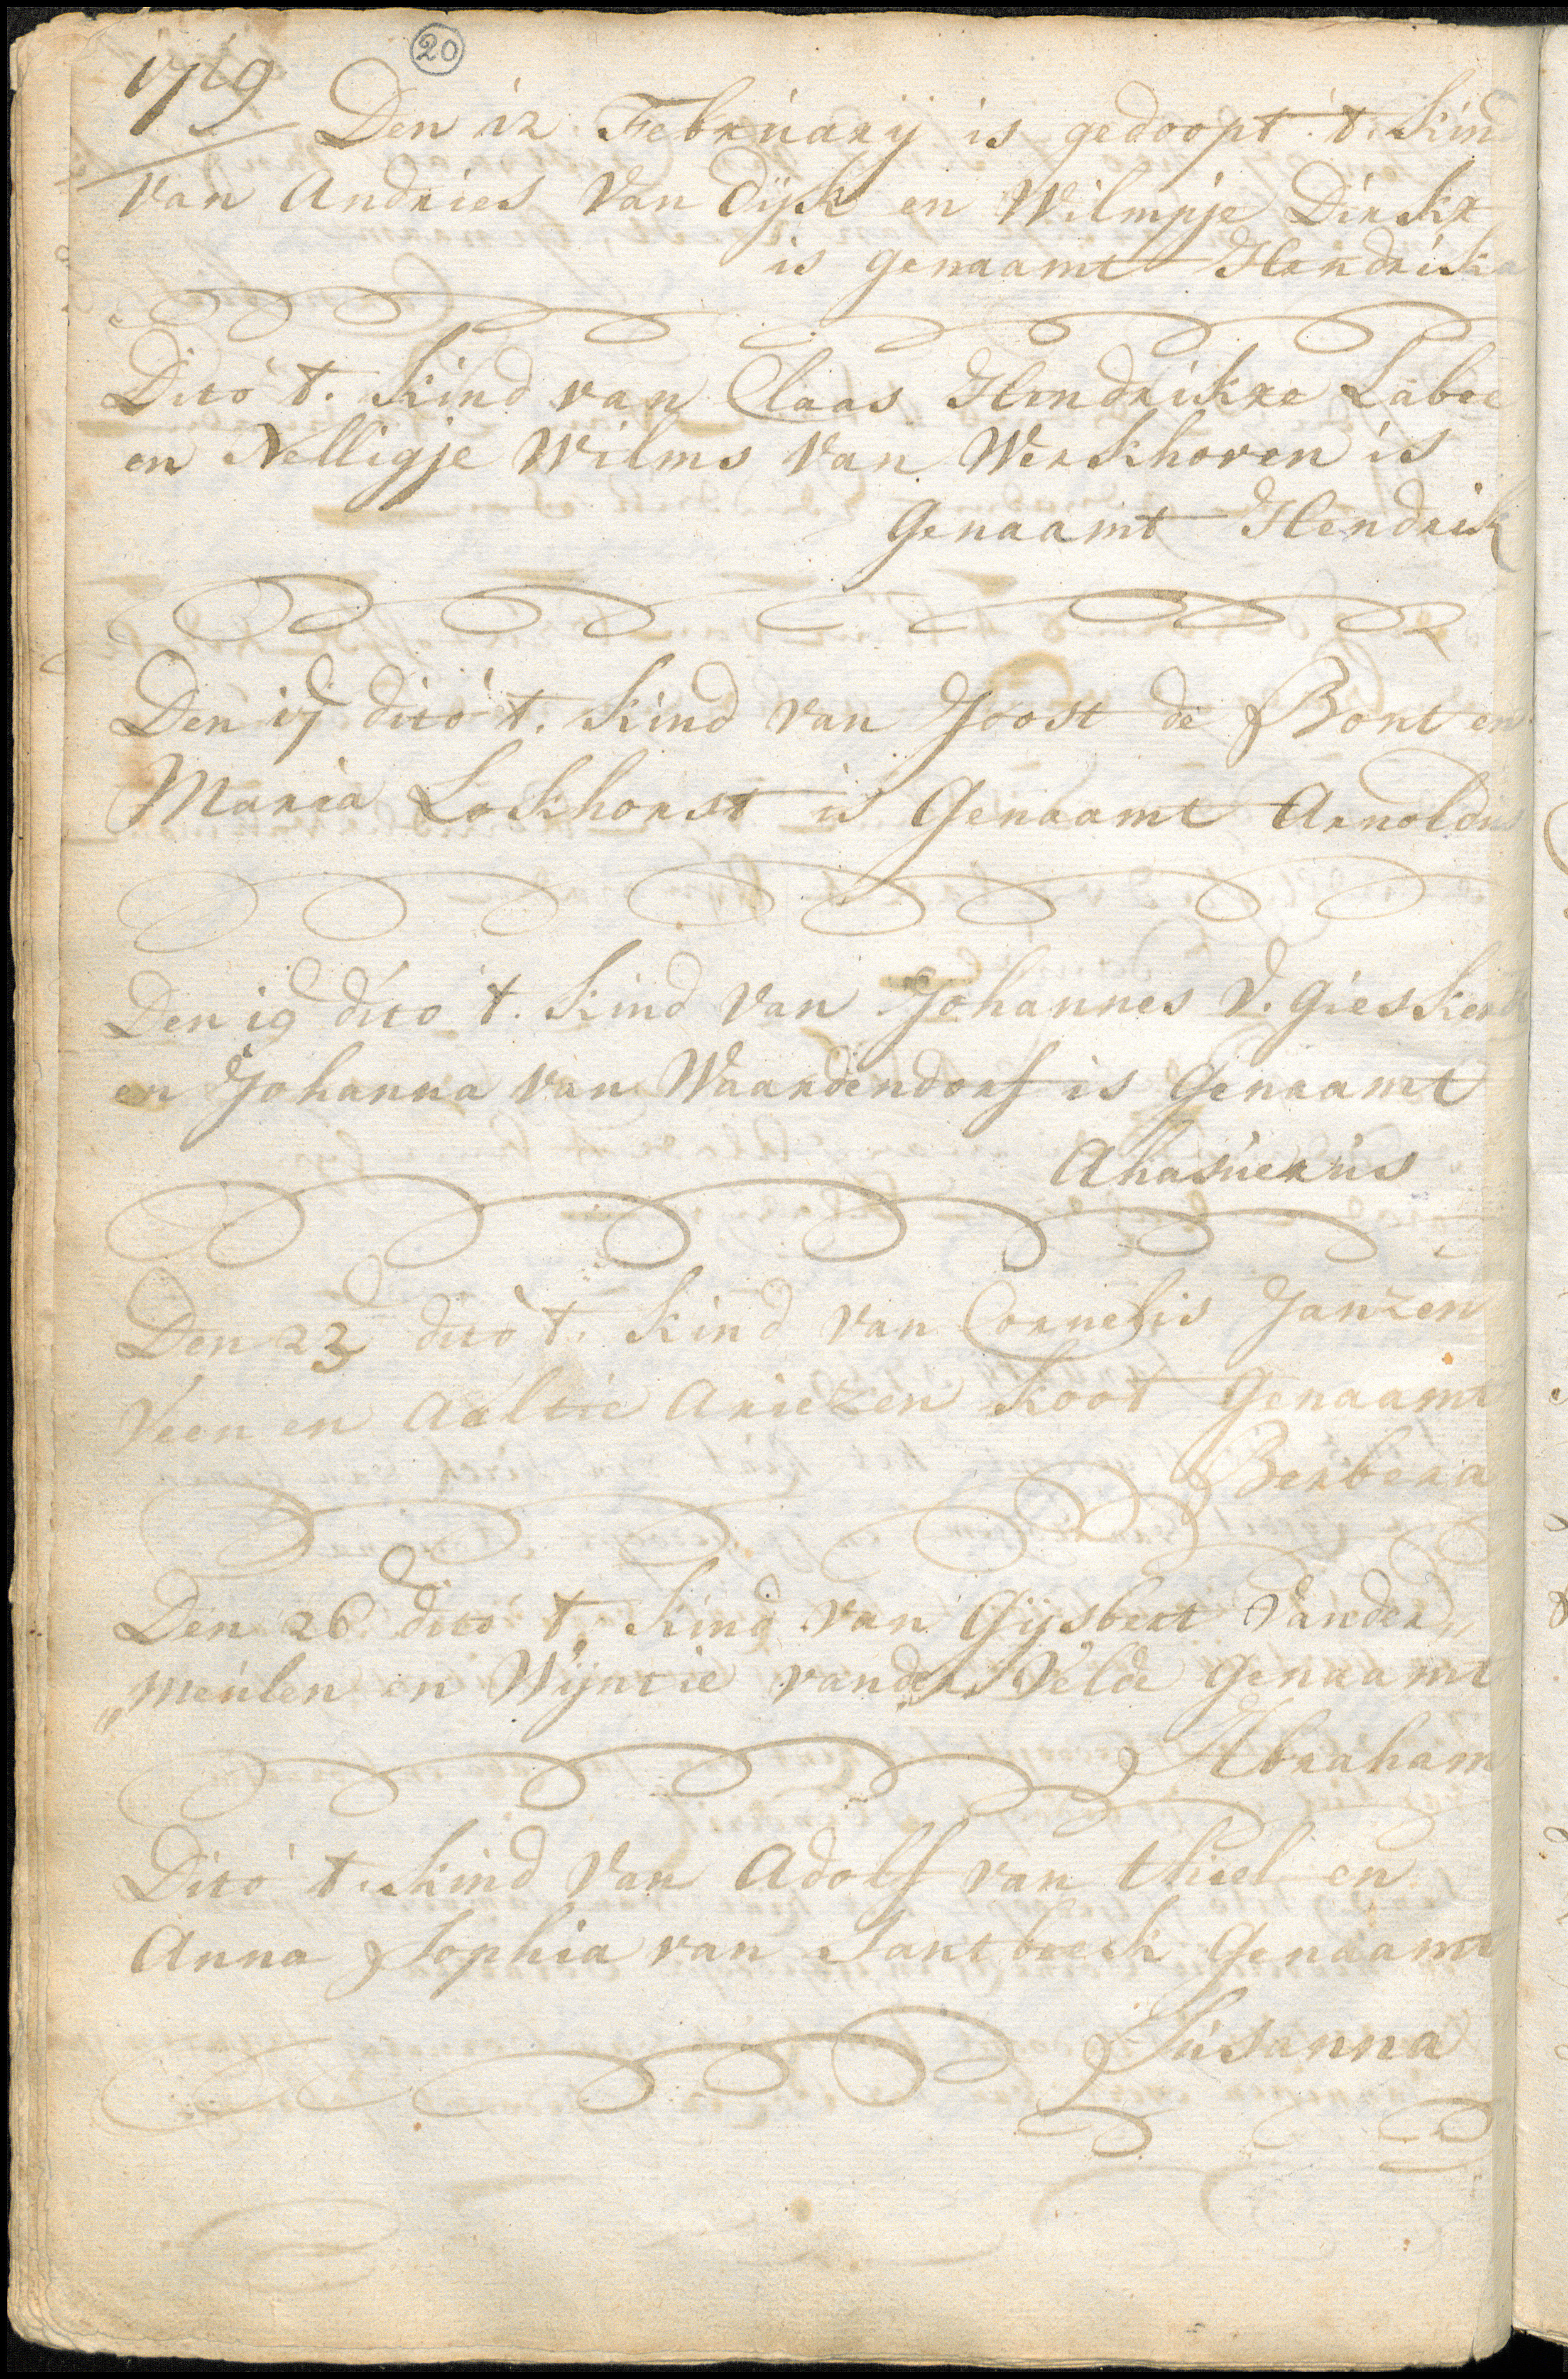 20
1719
Den 12 February is gedoopt t. kind
van Andries van Dijk en Wilmpje Dirkx
is genaamt Hendrika
Dito t. kind van Claas Hendrikxe Laboe
en Nelligje Wilms van Werkhoven is
Genaamt Hendrik
Den 17 dito t. kind van Joost de Bont en
Maria Lockhorst is Genaamt Arnoldus
Den 19 dito t. kind van Johannes V. Gieskerk
en Johanna van Waardendorf is Genaamt
Ahasuerus
Den 23 dito t. kind van Cornelis Janzen
Veen en Aaltie Ariezen Koot Genaamt
Berbera
Den 26 dito t. kind van Gijsbert vander„
„meulen en Wijntie vander Velde Genaamt
Abraham
Dito t. kind van Adolf van thiel en
Anna Sophia van Santbeek Genaamt
Susanna